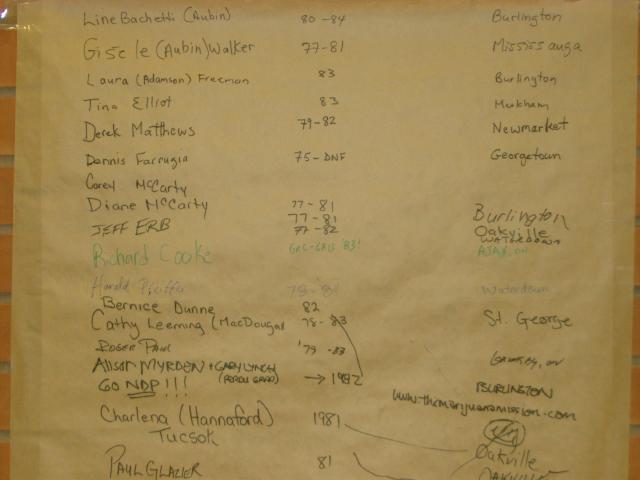 Line Bachetti (Aubin) 80-84 Burlington
Gisele (Aubin) Walker 77-81 Mississauga
Laura (Adamson) Freeman 83 Burlington
Tina Elliot 83 Markham
Derek Matthews 79-82 Newmarket
Dennis Farrugia 75-DNF Georgetown
Corey McCarty
Diane McCarty 77-81 Burlington
77-81 Oakville
JEFF ERB 77-82 WATERDOWN
Richard Cooke '83! AJAX, ON
Harold Pfeiffer Waterdown
Bernice Dunne 82
Cathy Leeming (MacDougal 78-83 St. George
ROGER PAUL '79-83
Alison MYRDEN + GARY LYNCH
GO NDP!!! → 1982 BURLINGTON
www.themarijuanamission.com
Charlena (Hannaford) 1981
Tucsok Oakville
PAUL GLAZIER 81 OAKVILLE